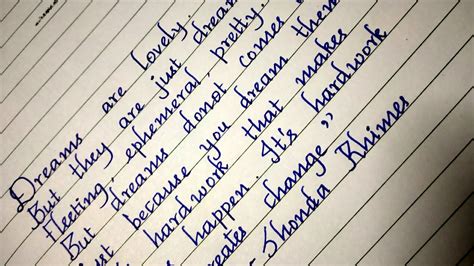 Dreams are lovely.
But they are just dream
fleeting, ephemeral, pretty.
But dreams donot comes
just because you dream them
hardwork that makes
happen. It's hardwork
creates change"
- Shonda Rhimes